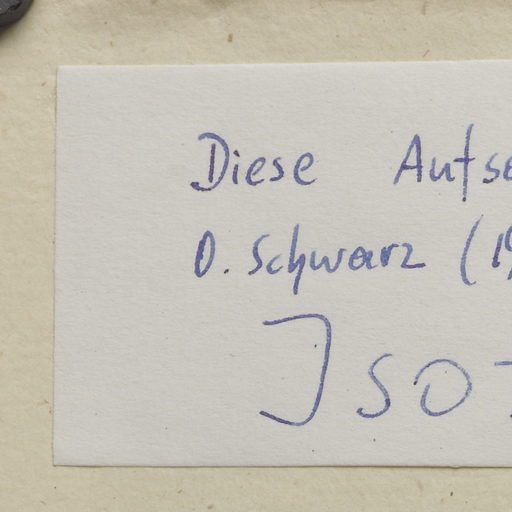 Diese Aufse
O. Schwarz (19
Iso